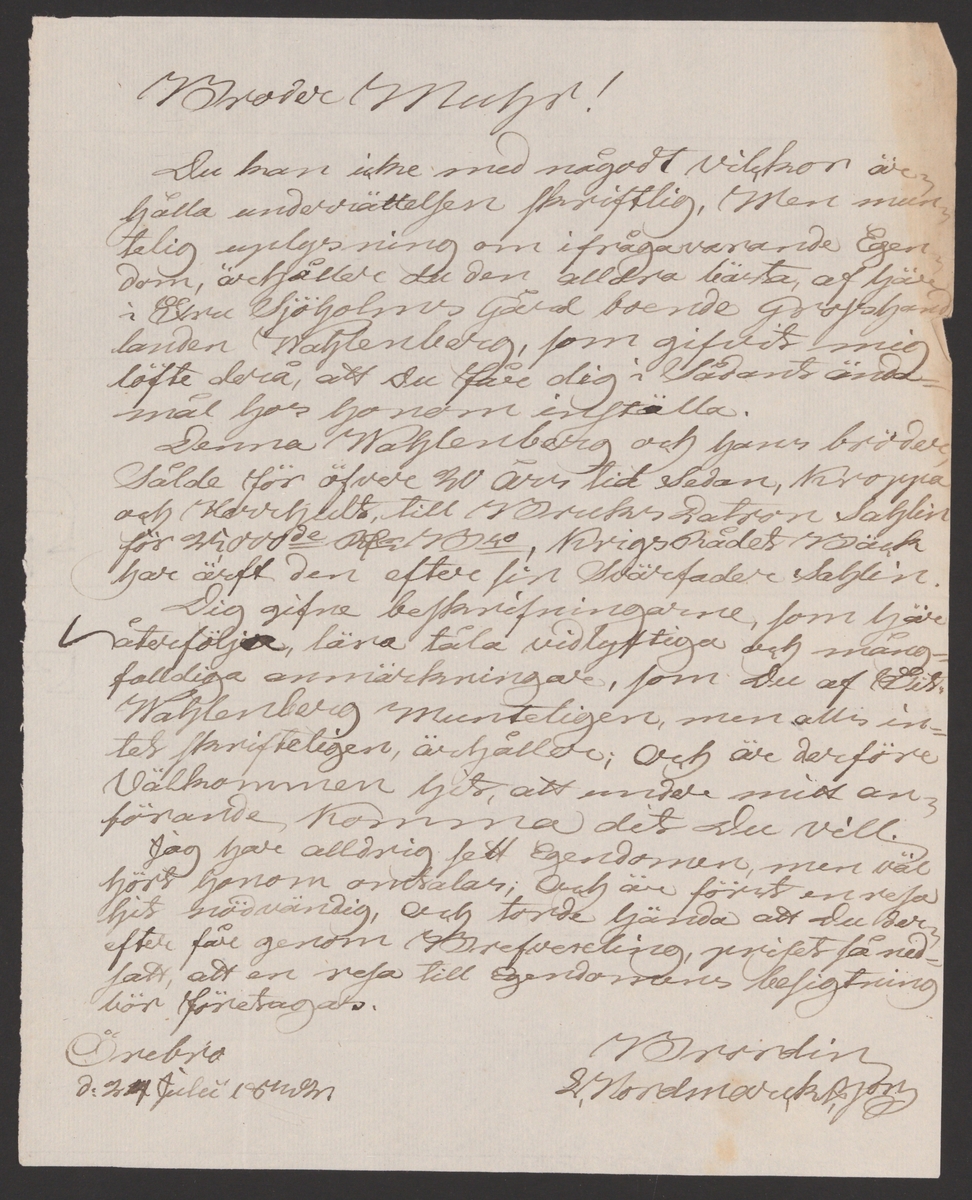 Broder Muhr!
Du kan icke med någodt vilckor är-
hålla underrättelsen skriftlig, Men mun-
telig uplysning om ifrågavarande Egen-
dom, ärhåller du den alldra bästa, af här
i Sjöholms Gård boende Grosshand
landen Wahlenberg, som gifvit mig
löfte derå, att Du får dig i Sådant ända-
mål hos honom inställa.
Denna Wahlenberg och hans bröder,
Sålde för öfver 20 års tid Sedan, Kroppa
och till Bruks Patron Sahlin
för Krigs Rådet Bäck
har ärft den efter sin Svärfader Sahlin.
Dig gifne beskrifningarne, som här
återfölja, lära tåla vidlyftiga och mång-
falldiga anmärkningar, som Du af
Wahlenberg Munteligen, men alls in-
tet skrifteligen, ärhåller; och är derföre
Välkommen hit, att under mitt an-
förande, Komma dit Du vill.
Jag har alldrig sett Egendomen, men väl
hört honom omtalas; och är först en resa
hit nödvändig, och torde hända att Du der-
efter får genom Brefvexling, priset så ned-
satt, att en resa till Egendomens besigtning
bör företagas.
Örebro
d. 24 Julii
Brordin
Nordmarck